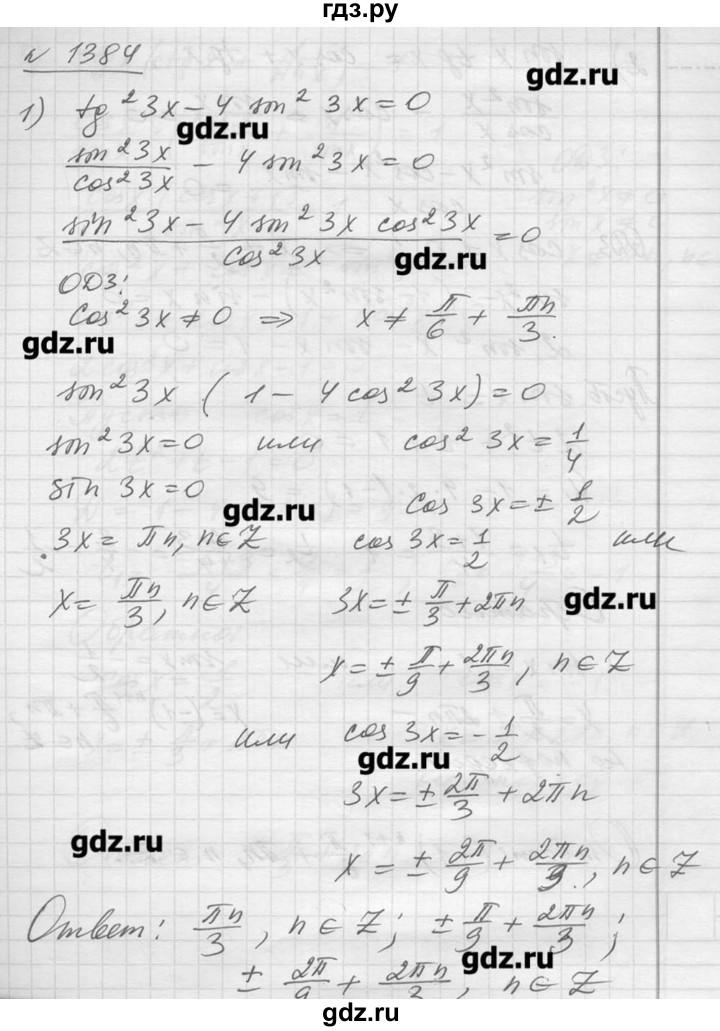 гдз.ру
N 1384
gdz.ru
1) tg² 3x – 4 sin² 3x = 0
gdz.ru
sin² 3x / cos² 3x – 4 sin² 3x = 0
(sin² 3x – 4 sin² 3x cos² 3x) / cos² 3x = 0
gdz.ru
ОДЗ:
cos² 3x ≠ 0 ⇒ x ≠ π/6 + πn/3.
gdz.ru
sin² 3x (1 – 4 cos² 3x) = 0
sin² 3x = 0 или cos² 3x = 1/4
sin 3x = 0 cos 3x = ± 1/2
gdz.ru
3x = πn, n ∈ Z cos 3x = 1/2 или
x = πn/3, n ∈ Z 3x = ± π/3 + 2πn
gdz.ru
x = ± π/9 + 2πn/3, n ∈ Z
или cos 3x = – 1/2
gdz.ru
3x = ± 2π/3 + 2πn
gdz.ru
x = ± 2π/9 + 2πn/3, n ∈ Z
Ответ: πn/3, n ∈ Z; ± π/9 + 2πn/3;
gdz.ru
± 2π/9 + 2πn/3, n ∈ Z
гдз.ру